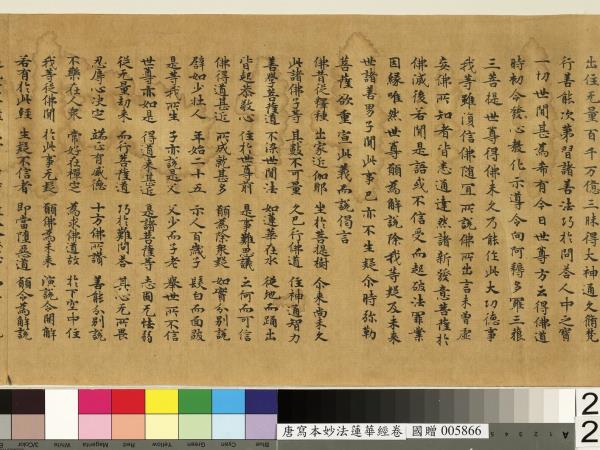 出住无量百千万億三昧得大神通久脩梵
行善能次第習諸善法巧於問答人中之寶
一切世間甚為希有今日世尊方云得佛道
時初令發心教化示導令向阿耨多羅三藐
三菩提世尊得佛未久乃能作此大功德事
我等雖復信佛隨宜所說佛所出言未曾虛
妄佛所知者皆悉通達然諸新發意菩薩於
佛滅後若聞是語或不信受而起破法罪業
因緣唯然世尊願為解說除我等疑及未來
世諸善男子聞此事已亦不生疑尒時弥勒
菩薩欲重宣此義而說偈言
佛昔從釋種 出家近伽耶 坐於菩提樹 尒來尚未久
此諸佛子等 其數不可量 久已行佛道 住神通智力
善學菩薩道 不染世間法 如蓮華在水 從地而踊出
皆起恭敬心 住於世尊前 是事難思議 云何而可信
佛得道甚近 所成就甚多 願為除衆疑 如實分別說
譬如少壯人 年始二十五 示人百歲子 髮白而面皺
是等我所生 子亦說是父 父少而子老 舉世所不信
世尊亦如是 得道來甚近 是諸菩薩等 志固无怯弱
從无量劫來 而行菩薩道 巧於難問答 其心无所畏
忍辱心決定 端正有威德 十方佛所讚 善能分別說
不樂在人衆 常好在禪定 為求佛道故 於下空中住
我等從佛聞 於此事无疑 願佛為未來 演說令開解
若有於此經 生疑不信者 即當墮惡道 願今為解說
3/Color White Magenta Red Yellow Green Cyan Blue
唐寫本妙法蓮華經卷 國贈 005866
A
2
2